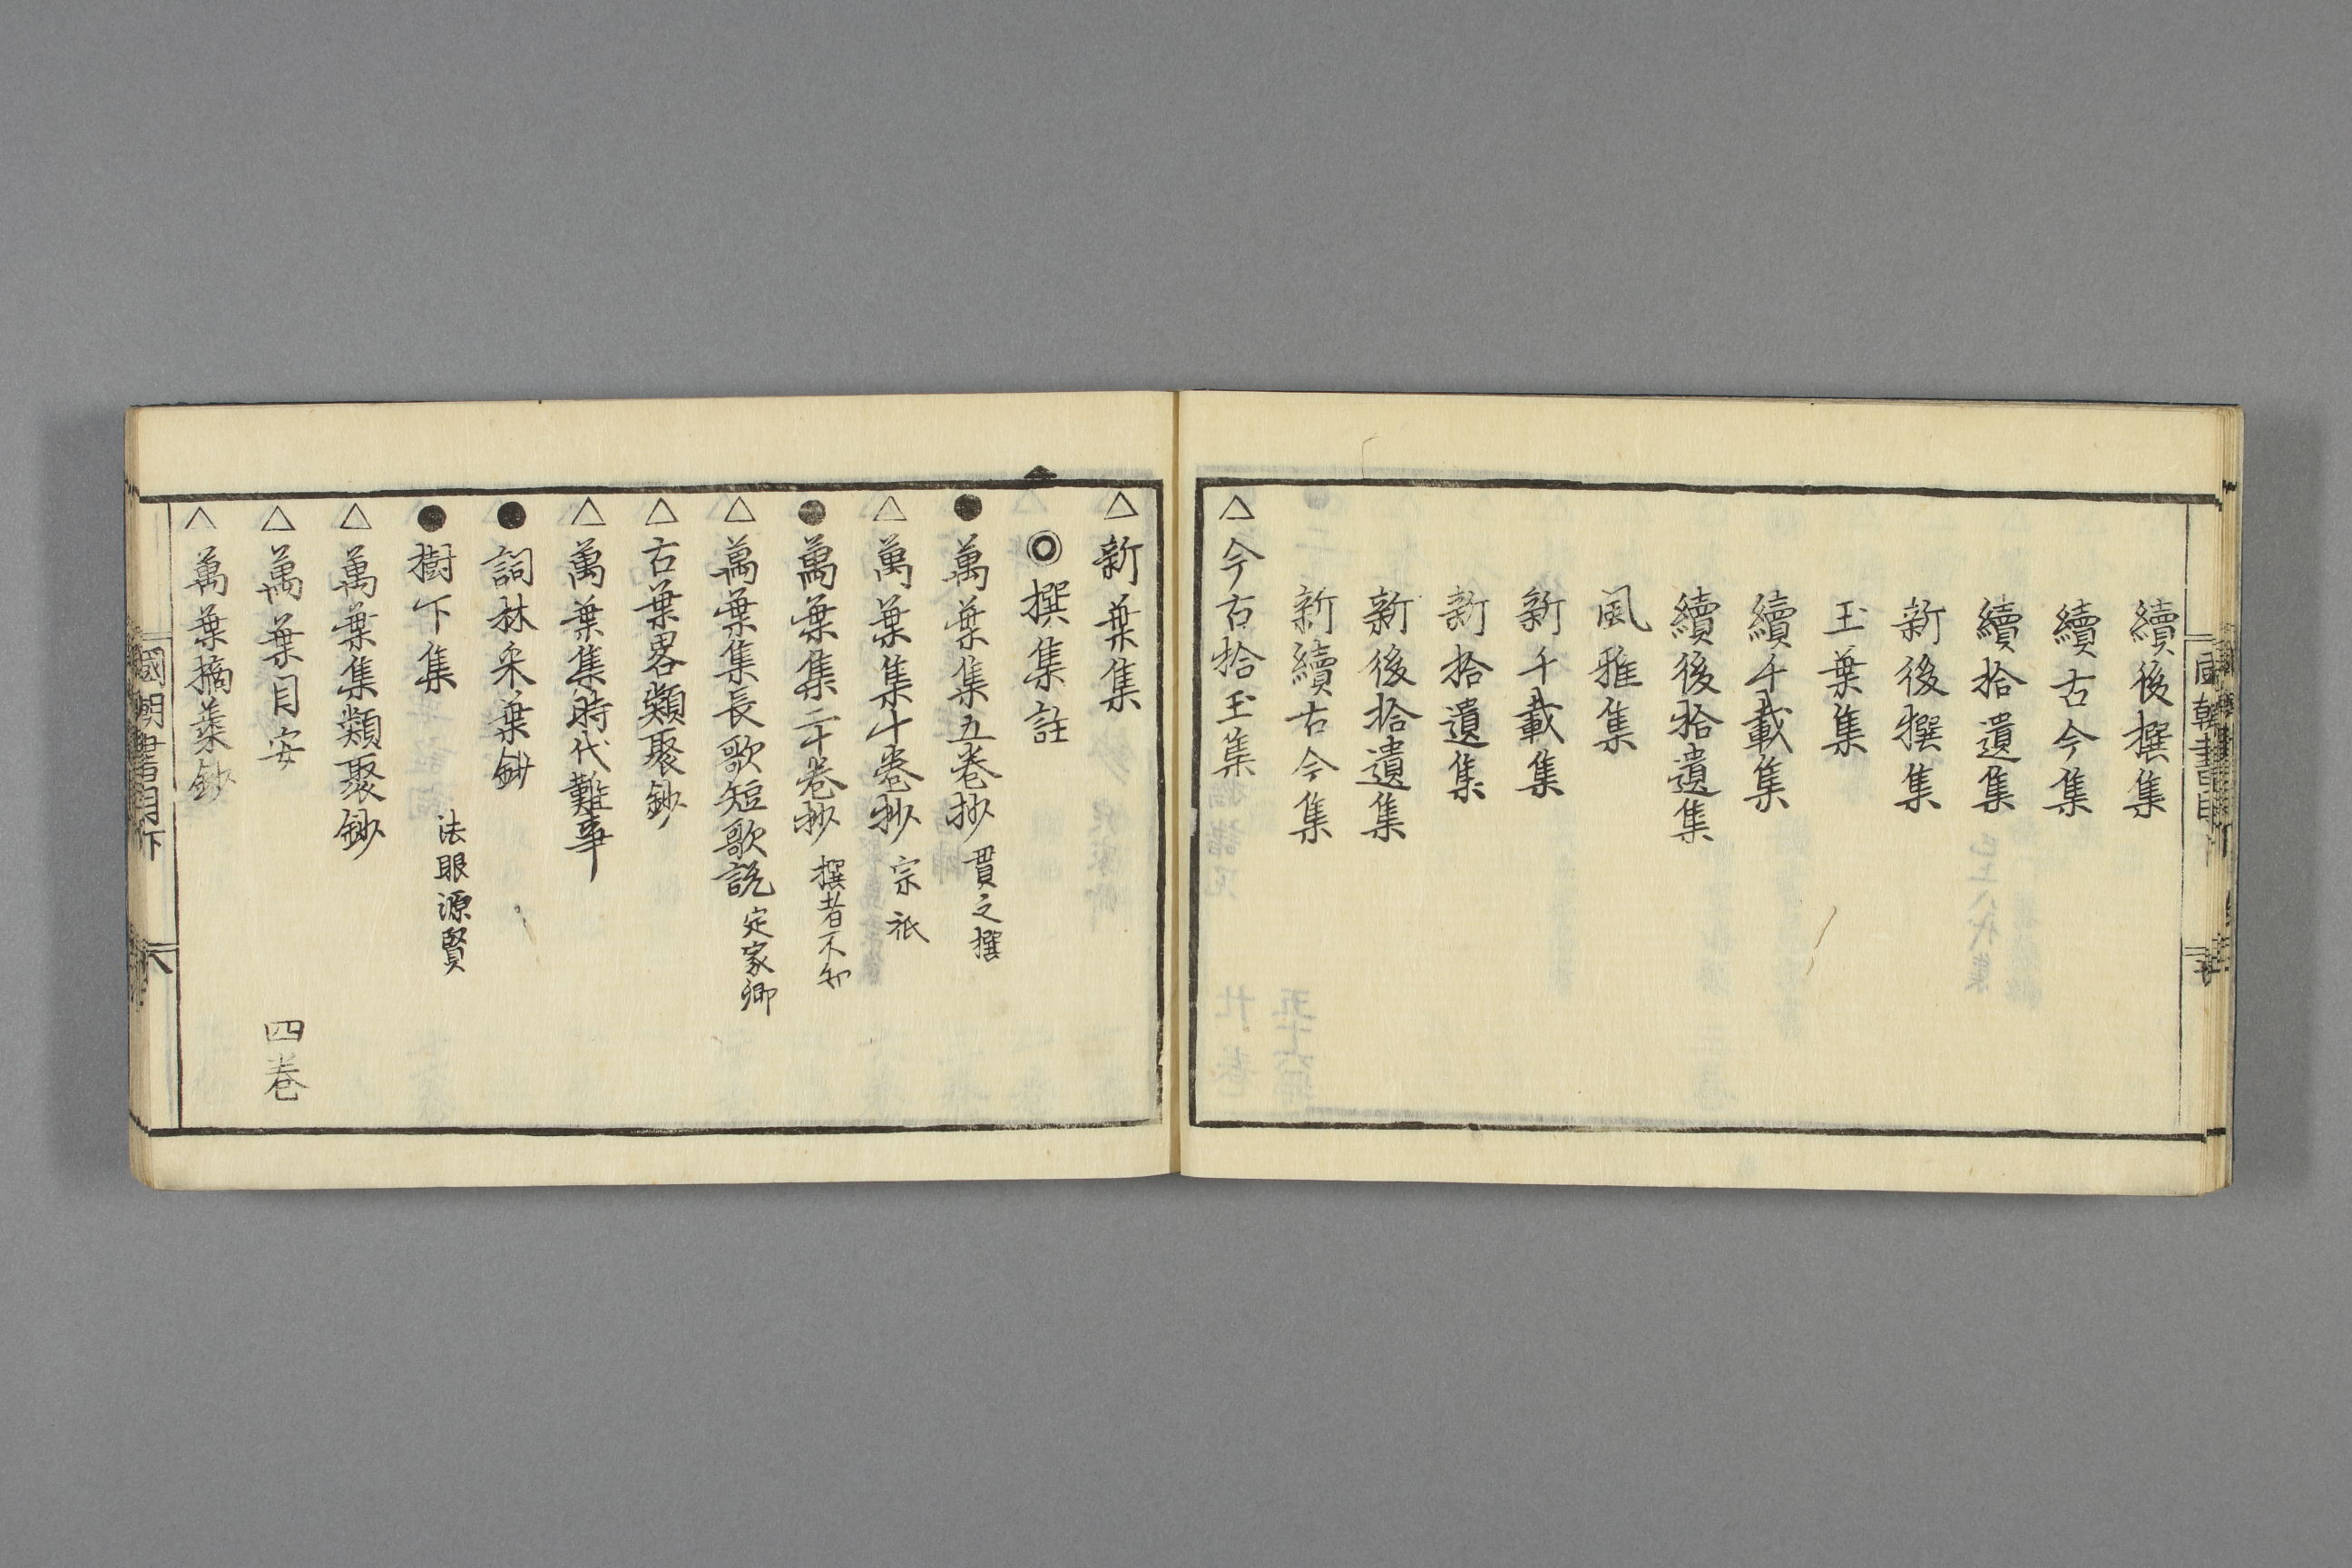 續後撰集
續古今集
續拾遺集
新後撰集
玉葉集
續千載集
續後拾遺集
風雅集
新千載集
新拾遺集
新後拾遺集
新續古今集
△今古拾玉集
△新葉集
◎撰集註
●萬葉集五巻抄 貫之撰
△萬葉集十巻抄 宗祇
●萬葉集二十巻抄 撰者不知
△萬葉集長歌短歌説 定家卿
△古葉畧類聚鈔
△萬葉集時代難事
●詞林采葉鈔
●樹下集 法眼源賢
△萬葉集類聚鈔
△萬葉目安 四巻
△萬葉摘葉鈔
國朝書目下 八